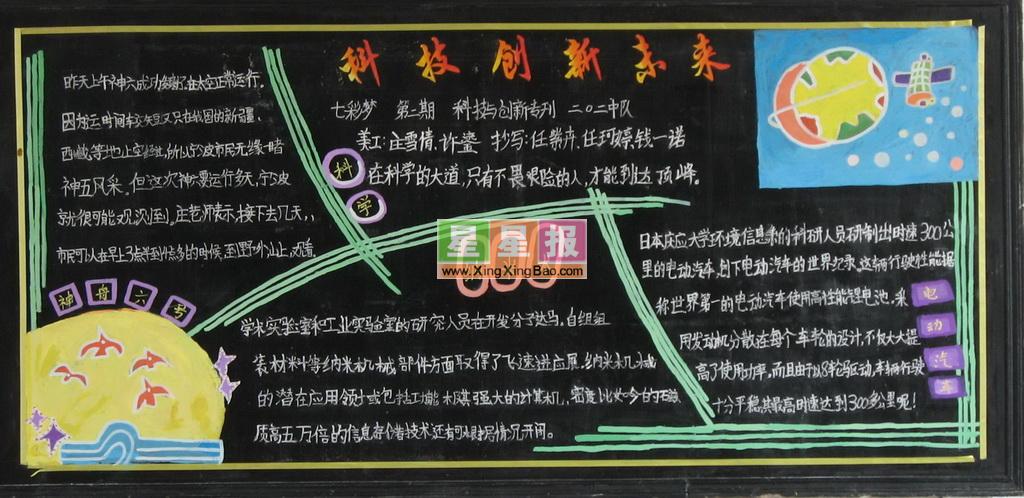 科技创新未来
七彩梦 第二期 科技与创新专刊 二〇二中队
美工:庄雪倩、许鎏 抄写:任紫卉、任珂嫄、钱一诺
科学
在科学的大道,只有不畏艰险的人,才能到达顶峰。
昨天上午神六成功发射,在太空正常运行。
因为运行时间较短又只在我国的新疆、
西藏等地上空经过,所以宁波市民无缘一睹
神五风采,但这次神六要运行多天,宁波
就很可能观测到,庄老师表示,接下去几天,
市民可以在早上3点半到4点多的时候,到野外、山上,观看
神舟六号
星星报
www.XingXingBao.com
学术实验室和工业实验室的研究人员在开发分子马达、自组
装材料等纳米机械部件方面取得了飞速进展。纳米机械
的潜在应用领域包括功能极其强大的计算机,密度比如今的
质高五万倍的信息存储技术还有
日本庆应大学环境信息系的科研人员研制出时速300公
里的电动汽车,创下电动汽车的世界纪录。这辆行驶性能堪
称世界第一的电动汽车使用高性能锂电池。采
用发动机分散在每个车轮的设计,不仅大大提
高了使用功率,而且由于以8轮驱动,车辆行驶
十分平稳,其最高时速达到300多公里呢!
电动汽车